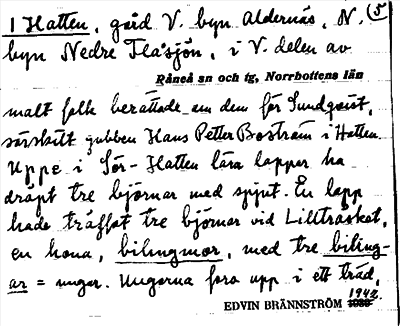 I Hatten, gård V. byn Aldernäs, N. 5
byn Nedre Flåsjön, i V. delen av
Råneå sn och tg, Norrbottens län
malt folk berättade om dem för Sundqvist,
särskilt gubben Hans Petter Boström i Hatten
Uppe i Sör-Hatten lära lappar ha
dräpt tre björnar med spjut. En lapp
hade träffat tre björnar vid Lillträsket,
en hona, bilingmor, med tre biling-
ar = ungar. Ungarna foro upp i ett träd,
EDVIN BRÄNNSTRÖM 1942